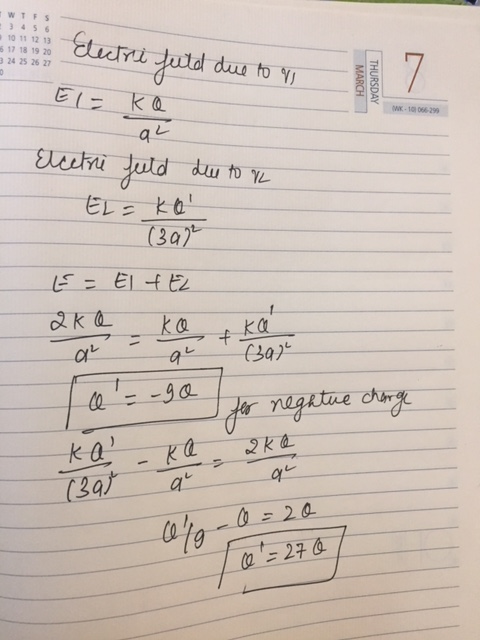 W T F S
2 3 4 5 6
9 10 11 12 13
16 17 18 19 20
23 24 25 26 27
30
THURSDAY
MARCH
7
(WK - 10) 066-299
Electric field due to q1
E1 = KQ/a²
Electric field due to q2
E2 = KQ'/(3a)²
E = E1 + E2
2KQ/a² = KQ/a² + KQ'/(3a)²
Q' = -9Q for negative charge
KQ'/(3a)² - KQ/a² = 2KQ/a²
Q'/9 - Q = 2Q
Q' = 27Q